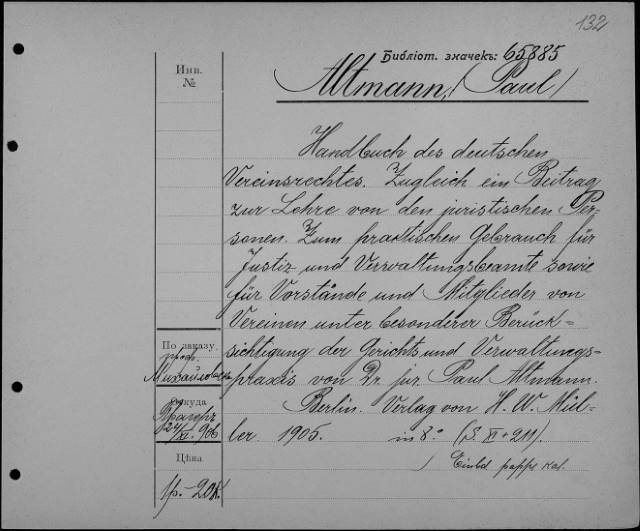 132
Библіот. значекъ: 65885
Инв.
№
Altmann, (Paul)
Handbuch des deutschen
Vereinsrechtes. Zugleich ein Beitrag
zur Lehre von den juristischen Per-
sonen. Zum praktischen Gebrauch für
Justiz und Verwaltungsbeamte sowie
für Vorstände und Mitglieder von
Vereinen unter besonderer Berück-
sichtigung der Gerichts und Verwaltungs-
praxis von Dr. jur. Paul Altmann.
Berlin. Verlag von H. W. Mül-
ler. 1905. in 8° (S. XI + 211).
Einbd pappe kal.
По заказу.
проф.
Откуда
24/XI. 906
Цѣна
1р. - 20к.